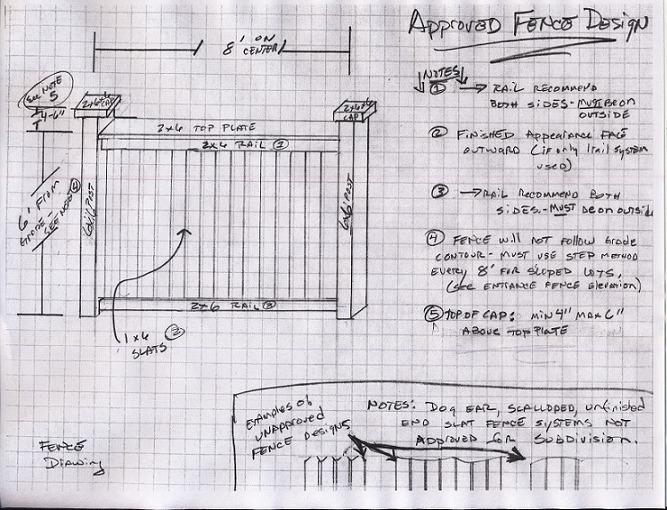 Approved Fence Design
8' ON
CENTER
See NOTE
5
4-6"
2x6x6 CAP
2x6x6
CAP
2x6 TOP PLATE
2x4 RAIL ①
6' FROM
GRADE -
SEE NOTE ④
6x6 POST
6x6 POST
2x6 RAIL ③
1x6 ②
SLATS
NOTES
① → RAIL RECOMMEND
BOTH SIDES - MUST BE ON
OUTSIDE
② FINISHED Appearance FACE
OUTWARD (if only 1 rail system
used)
③ → RAIL RECOMMEND BOTH
SIDES - MUST be on outside
④ FENCE will NOT Follow Grade
CONTOUR - MUST USE STEP METHOD
EVERY 8' FOR SLOPED LOTS,
(see ENTRANCE FENCE Elevation)
⑤ TOP OF CAP: MIN 4" MAX 6"
ABOVE TOP PLATE
Examples of
UNAPPROVED
FENCE DESIGNS
NOTES: Dog EAR, SCALLOPED, unfinished
END SLAT FENCE SYSTEMS NOT
Approved for SUBDIVISION.
FENCE
Drawing